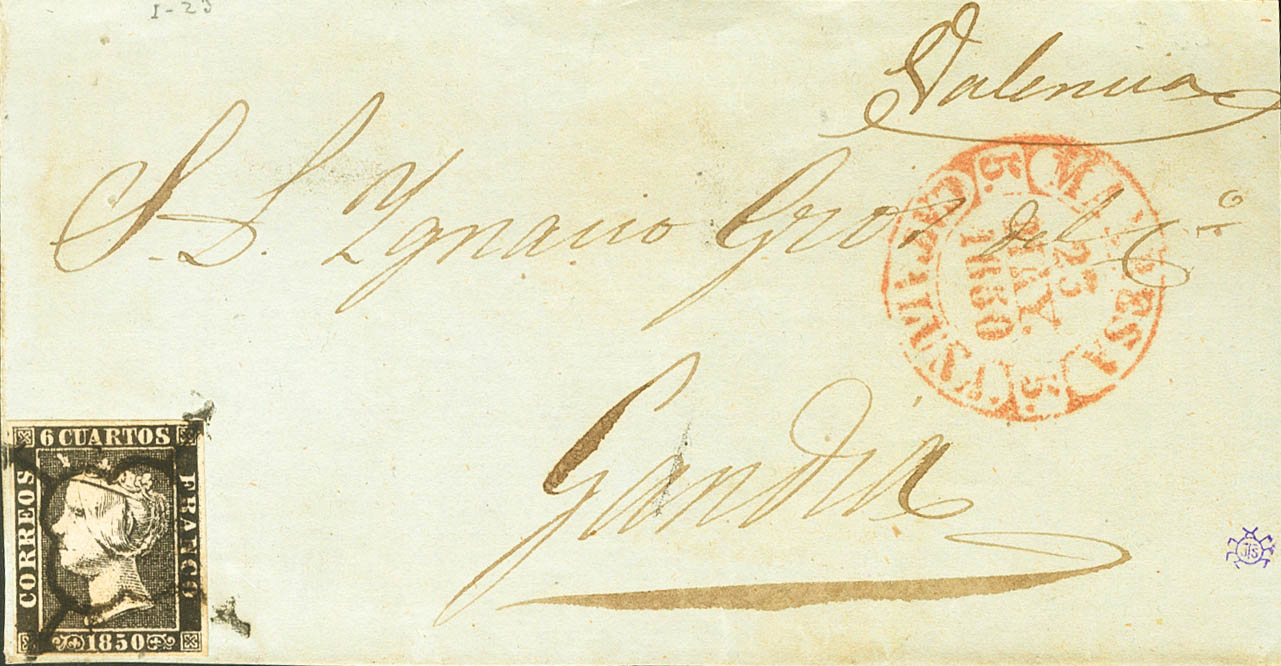 I-23
Valencia
S. D. Ygnacio Gros del Cº
MANRESA
5
23
MAY.
1850
5
Gandia
6 CUARTOS
CORREOS
FRANCO
1850